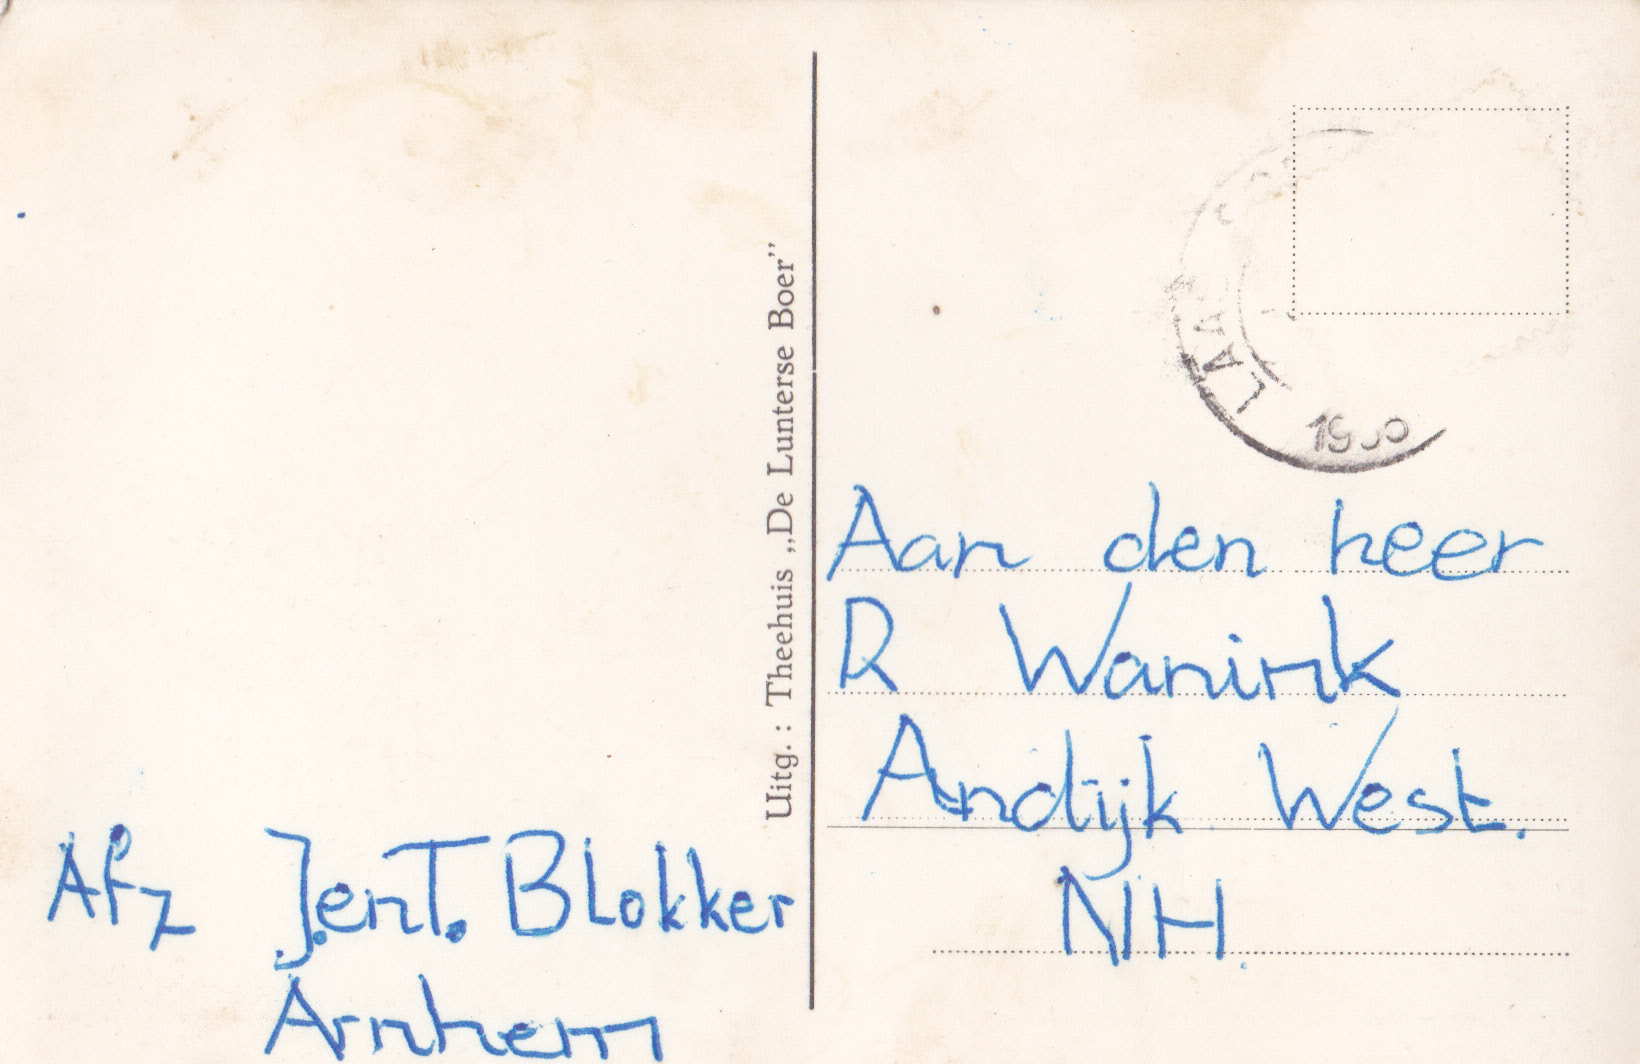 Afz J. en T. Blokker
Arnhem
Uitg.: Theehuis „De Lunterse Boer”
Aan den heer
R Wanink
Andijk West.
NH.